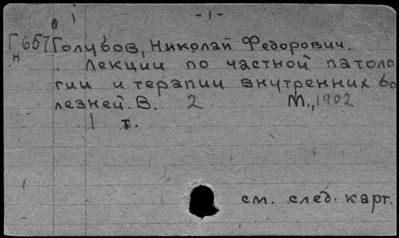 1 - 1 -
Г 657 Голубов, Николай Федорович.
н Лекции по частной патоло
гии и терапии внутренних бо
лезней. В. 2 М., 1902
1 т.
см. след. карт.